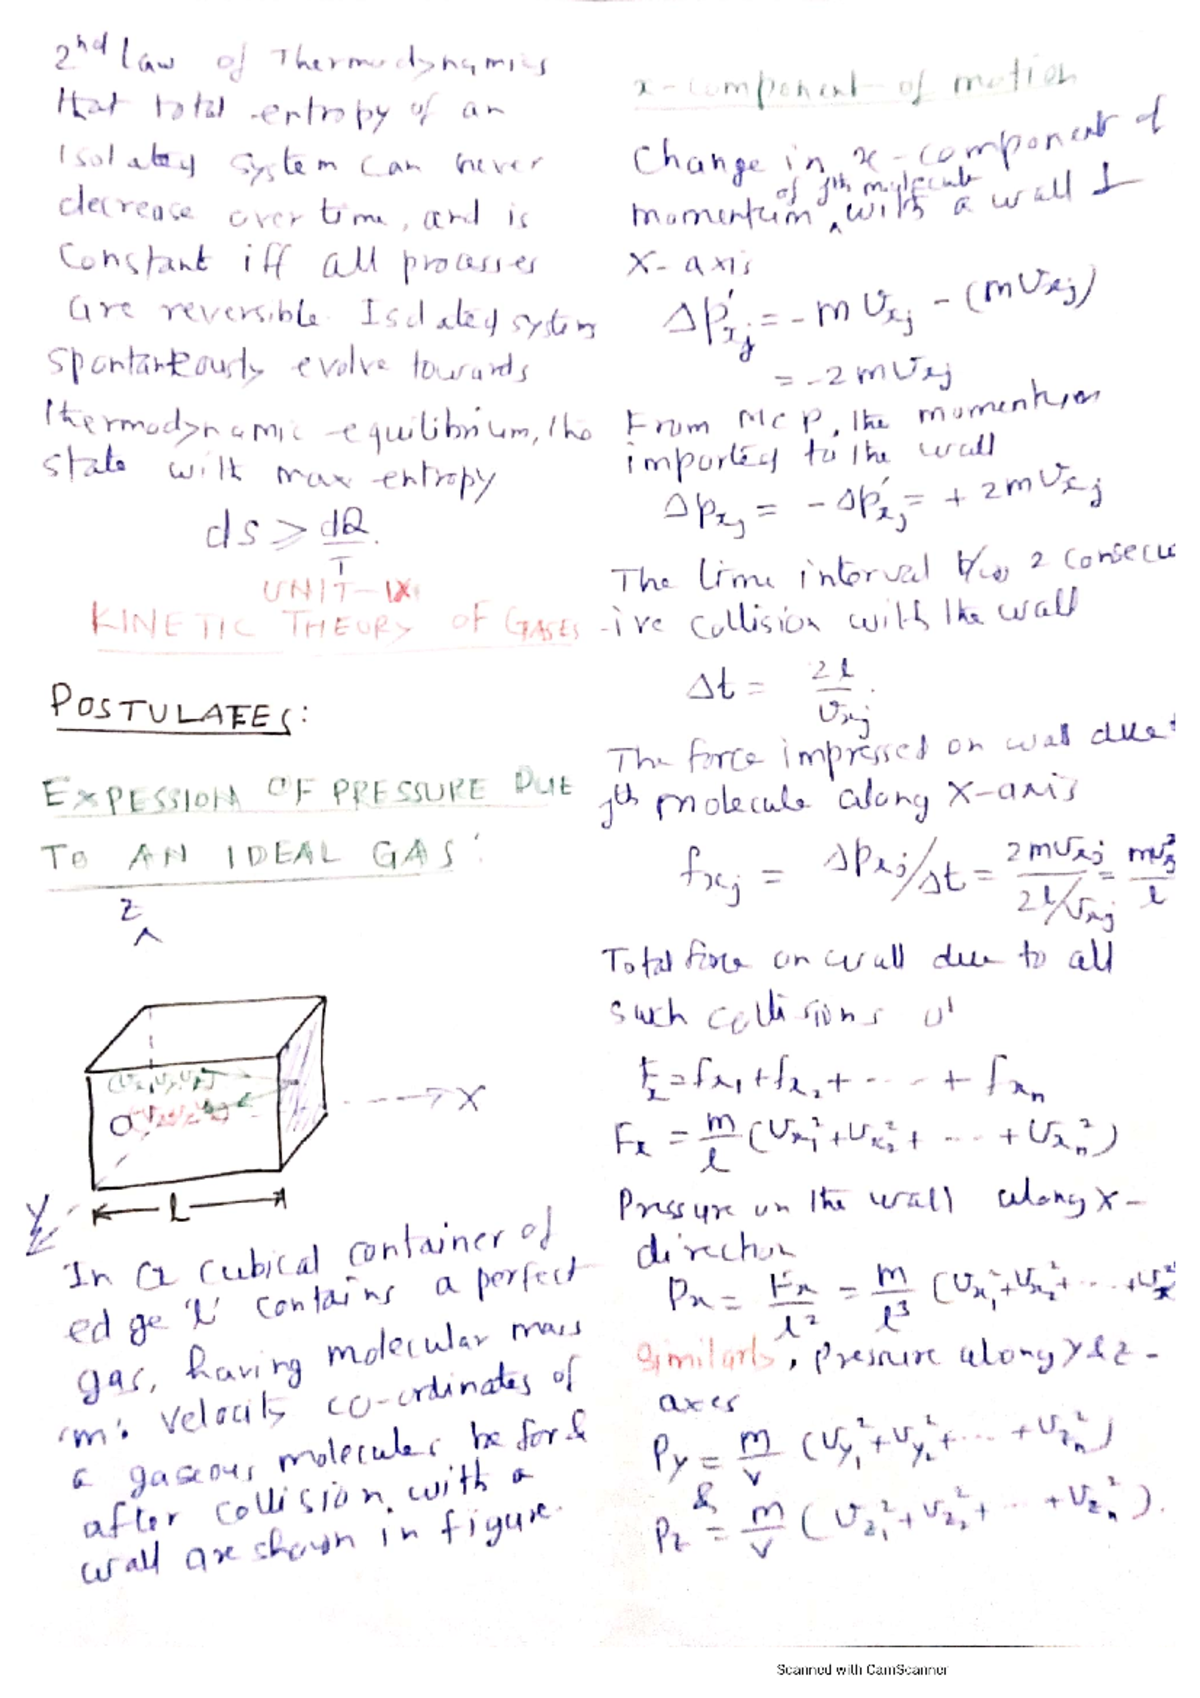 2nd law of Thermodynamics
that total entropy of an
Isolated system can never
decrease over time, and is
constant iff all processes
are reversible. Isolated system
spontaneously evolve towards
thermodynamic equilibrium, the
state with max entropy
ds ≥ dQ/T.
UNIT-IX
KINETIC THEORY OF GASES
POSTULATES:
EXPESSION OF PRESSURE DUE
TO AN IDEAL GAS:
Z
X
L
Y
In a cubical container of
edge 'l' contains a perfect
gas, having molecular mass
'm'. velocity co-ordinates of
a gaseous molecules before &
after collision with a
wall are shown in figure.
x-component of motion
Change in x-component of
of jth molecule
momentum ‸ with a wall ⊥
X-axis
Δp'xj = -mvxj - (mvxj)
= -2mvxj
From MCP, the momentum
imparted to the wall
Δpxj = -Δp'xj = +2mvxj
The time interval b/w 2 consecut
-ive collision with the wall
Δt = 2l/vxj.
The force impressed on wall due t
jth molecule along X-axis
fxj = Δpxj/Δt = 2mvxj / 2l/vxj = mv²xj / l
Total force on wall due to all
such collisions
Fx = fx1 + fx2 + ---- + fxn
Fx = m/l (vx1² + vx2² + --- + vxn²)
Pressure on the wall along X-
direction
Px = Fx/l² = m/l³ (vx1² + vx2² + --- + vxn²
Similarly, pressure along Y & Z-
axes
Py = m/v (vy1² + vy2² + --- + vzn²)
&
Pz = m/v (vz1² + vz2² + --- + vzn²).
Scanned with CamScanner